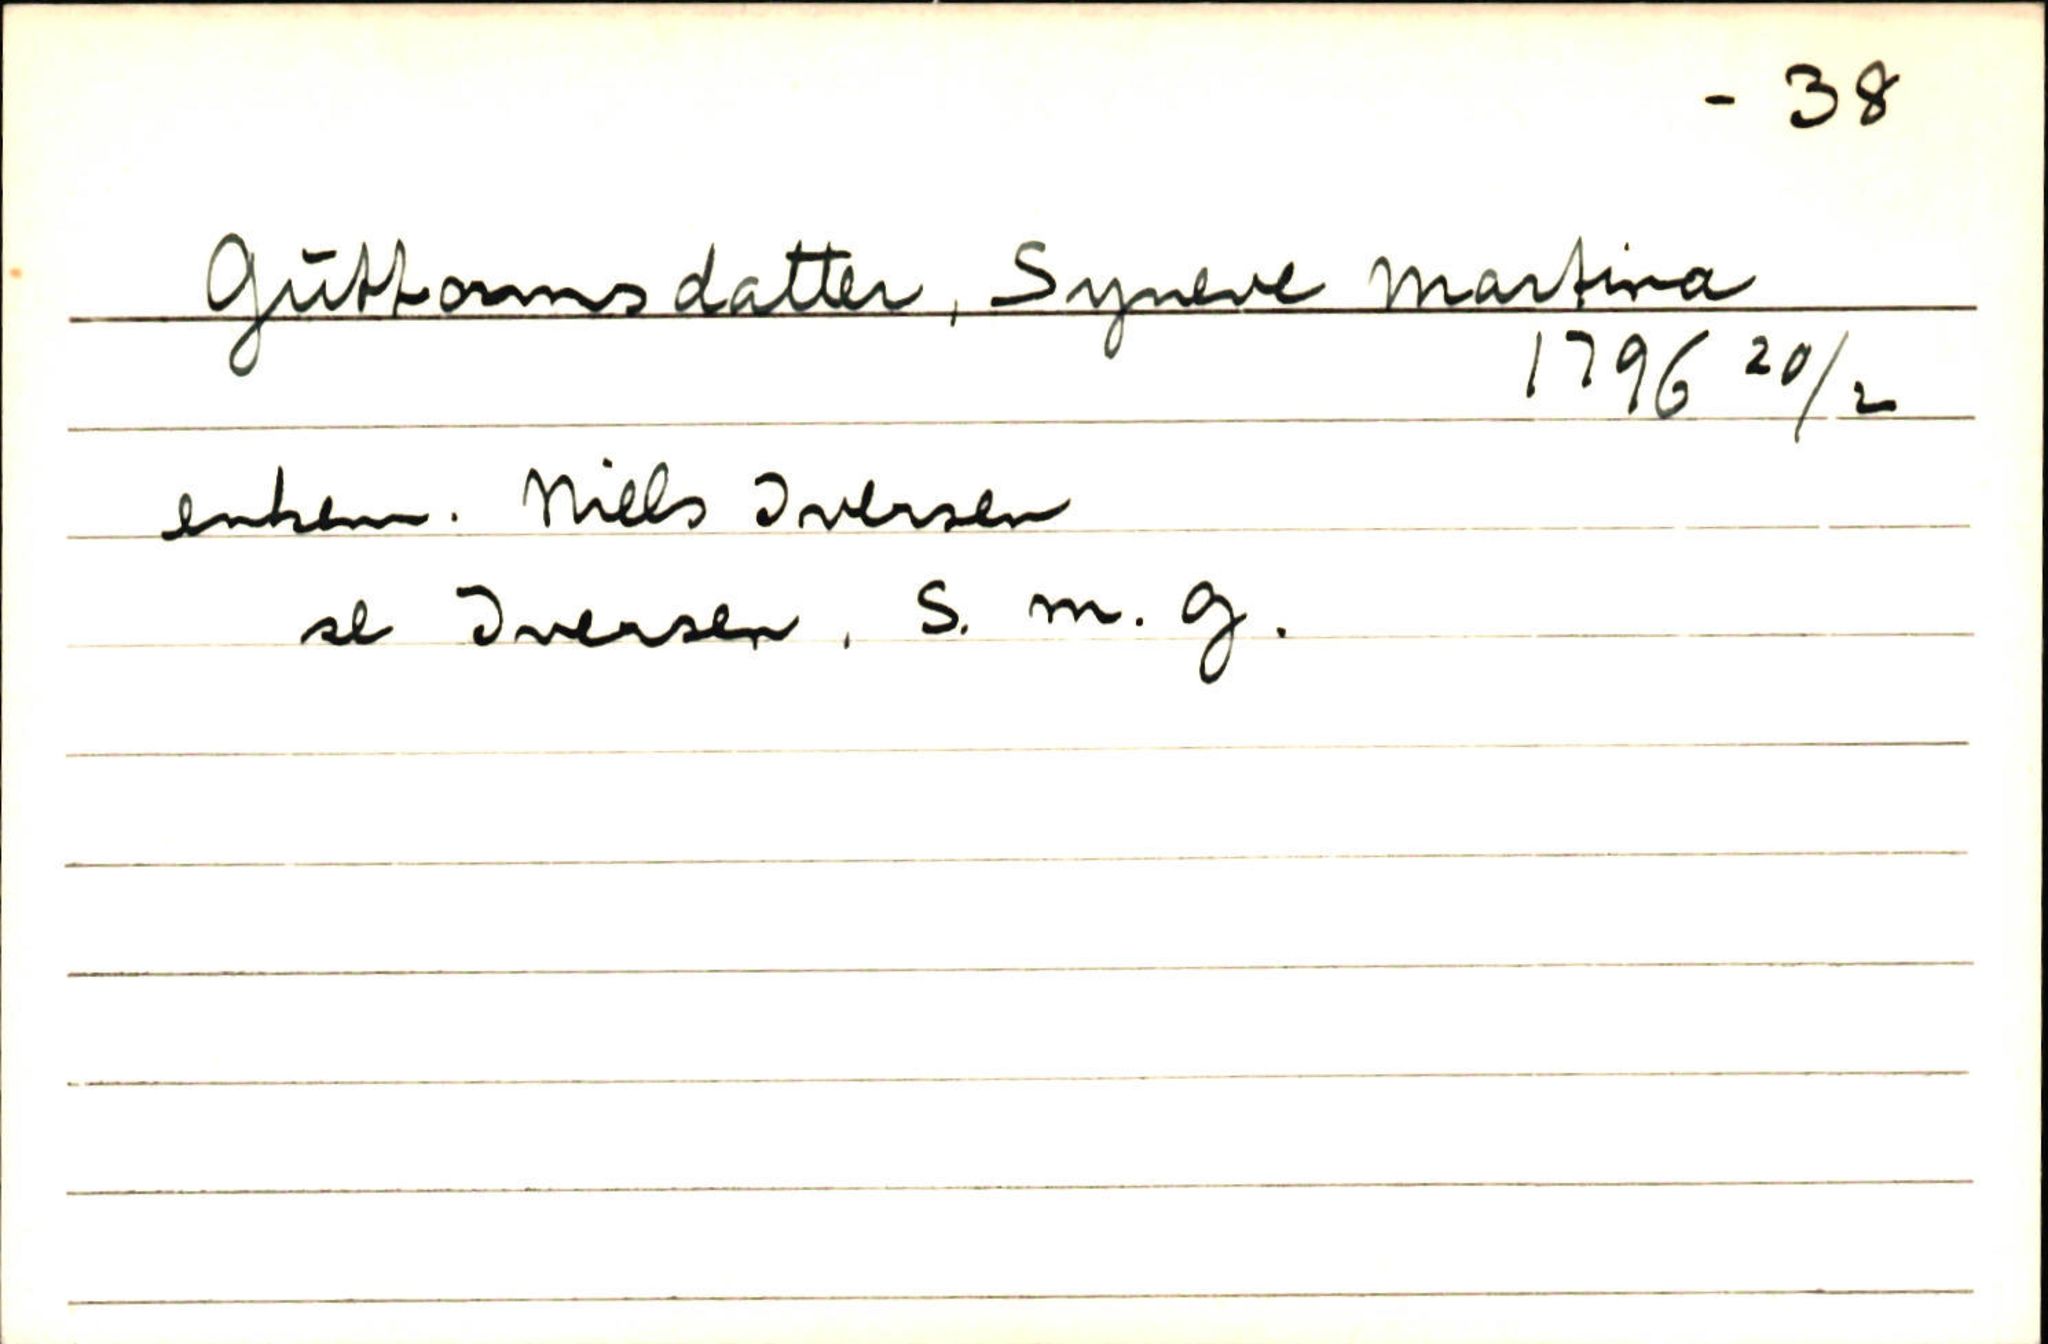 - 38
Guttormsdatter, Syneve Martina
1796 20/2
enkem. Niels Iversen
se Iversen, S. M. G.